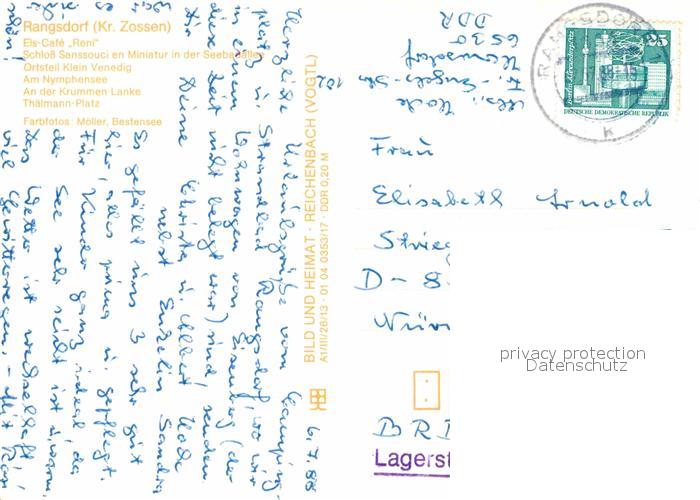 Rangsdorf (Kr. Zossen)
Eis-Café „Reni"
Schloß Sanssouci en Miniatur in der Seebadallee
Ortsteil Klein Venedig
Am Nymphensee
An der Krummen Lanke
Thälmann-Platz
Farbfotos: Möller, Bestensee
BILD UND HEIMAT · REICHENBACH (VOGTL)
A1/III/26/13 · 01 04 0353/17 · DDR 0,20 M
6.7.88
Herzliche Urlaubsgrüße vom Camping-
platz u. Strandbad Rangsdorf, wo wir
in einem Wohnwagen von Eisenberg (der
diese Zeit nicht belegt war) sind, senden
Dir Deine Christa u. Albert
nebst Enkelin Sandra
Es gefällt uns 3 sehr gut
hier, alles prima u. gepflegt.
Für Kinder ganz ideal, da
der See sehr seicht ist u. warm.
Das Wetter ist wechselhaft
viel Gewitterregen, – mit
6530
DDR
Frau
Elisabeth Arnold
Strieg
D-8
Nürn
BRD
Lagerst
RANGSDORF
25
Berlin, Alexanderplatz
DEUTSCHE DEMOKRATISCHE REPUBLIK
k
privacy protection
Datenschutz